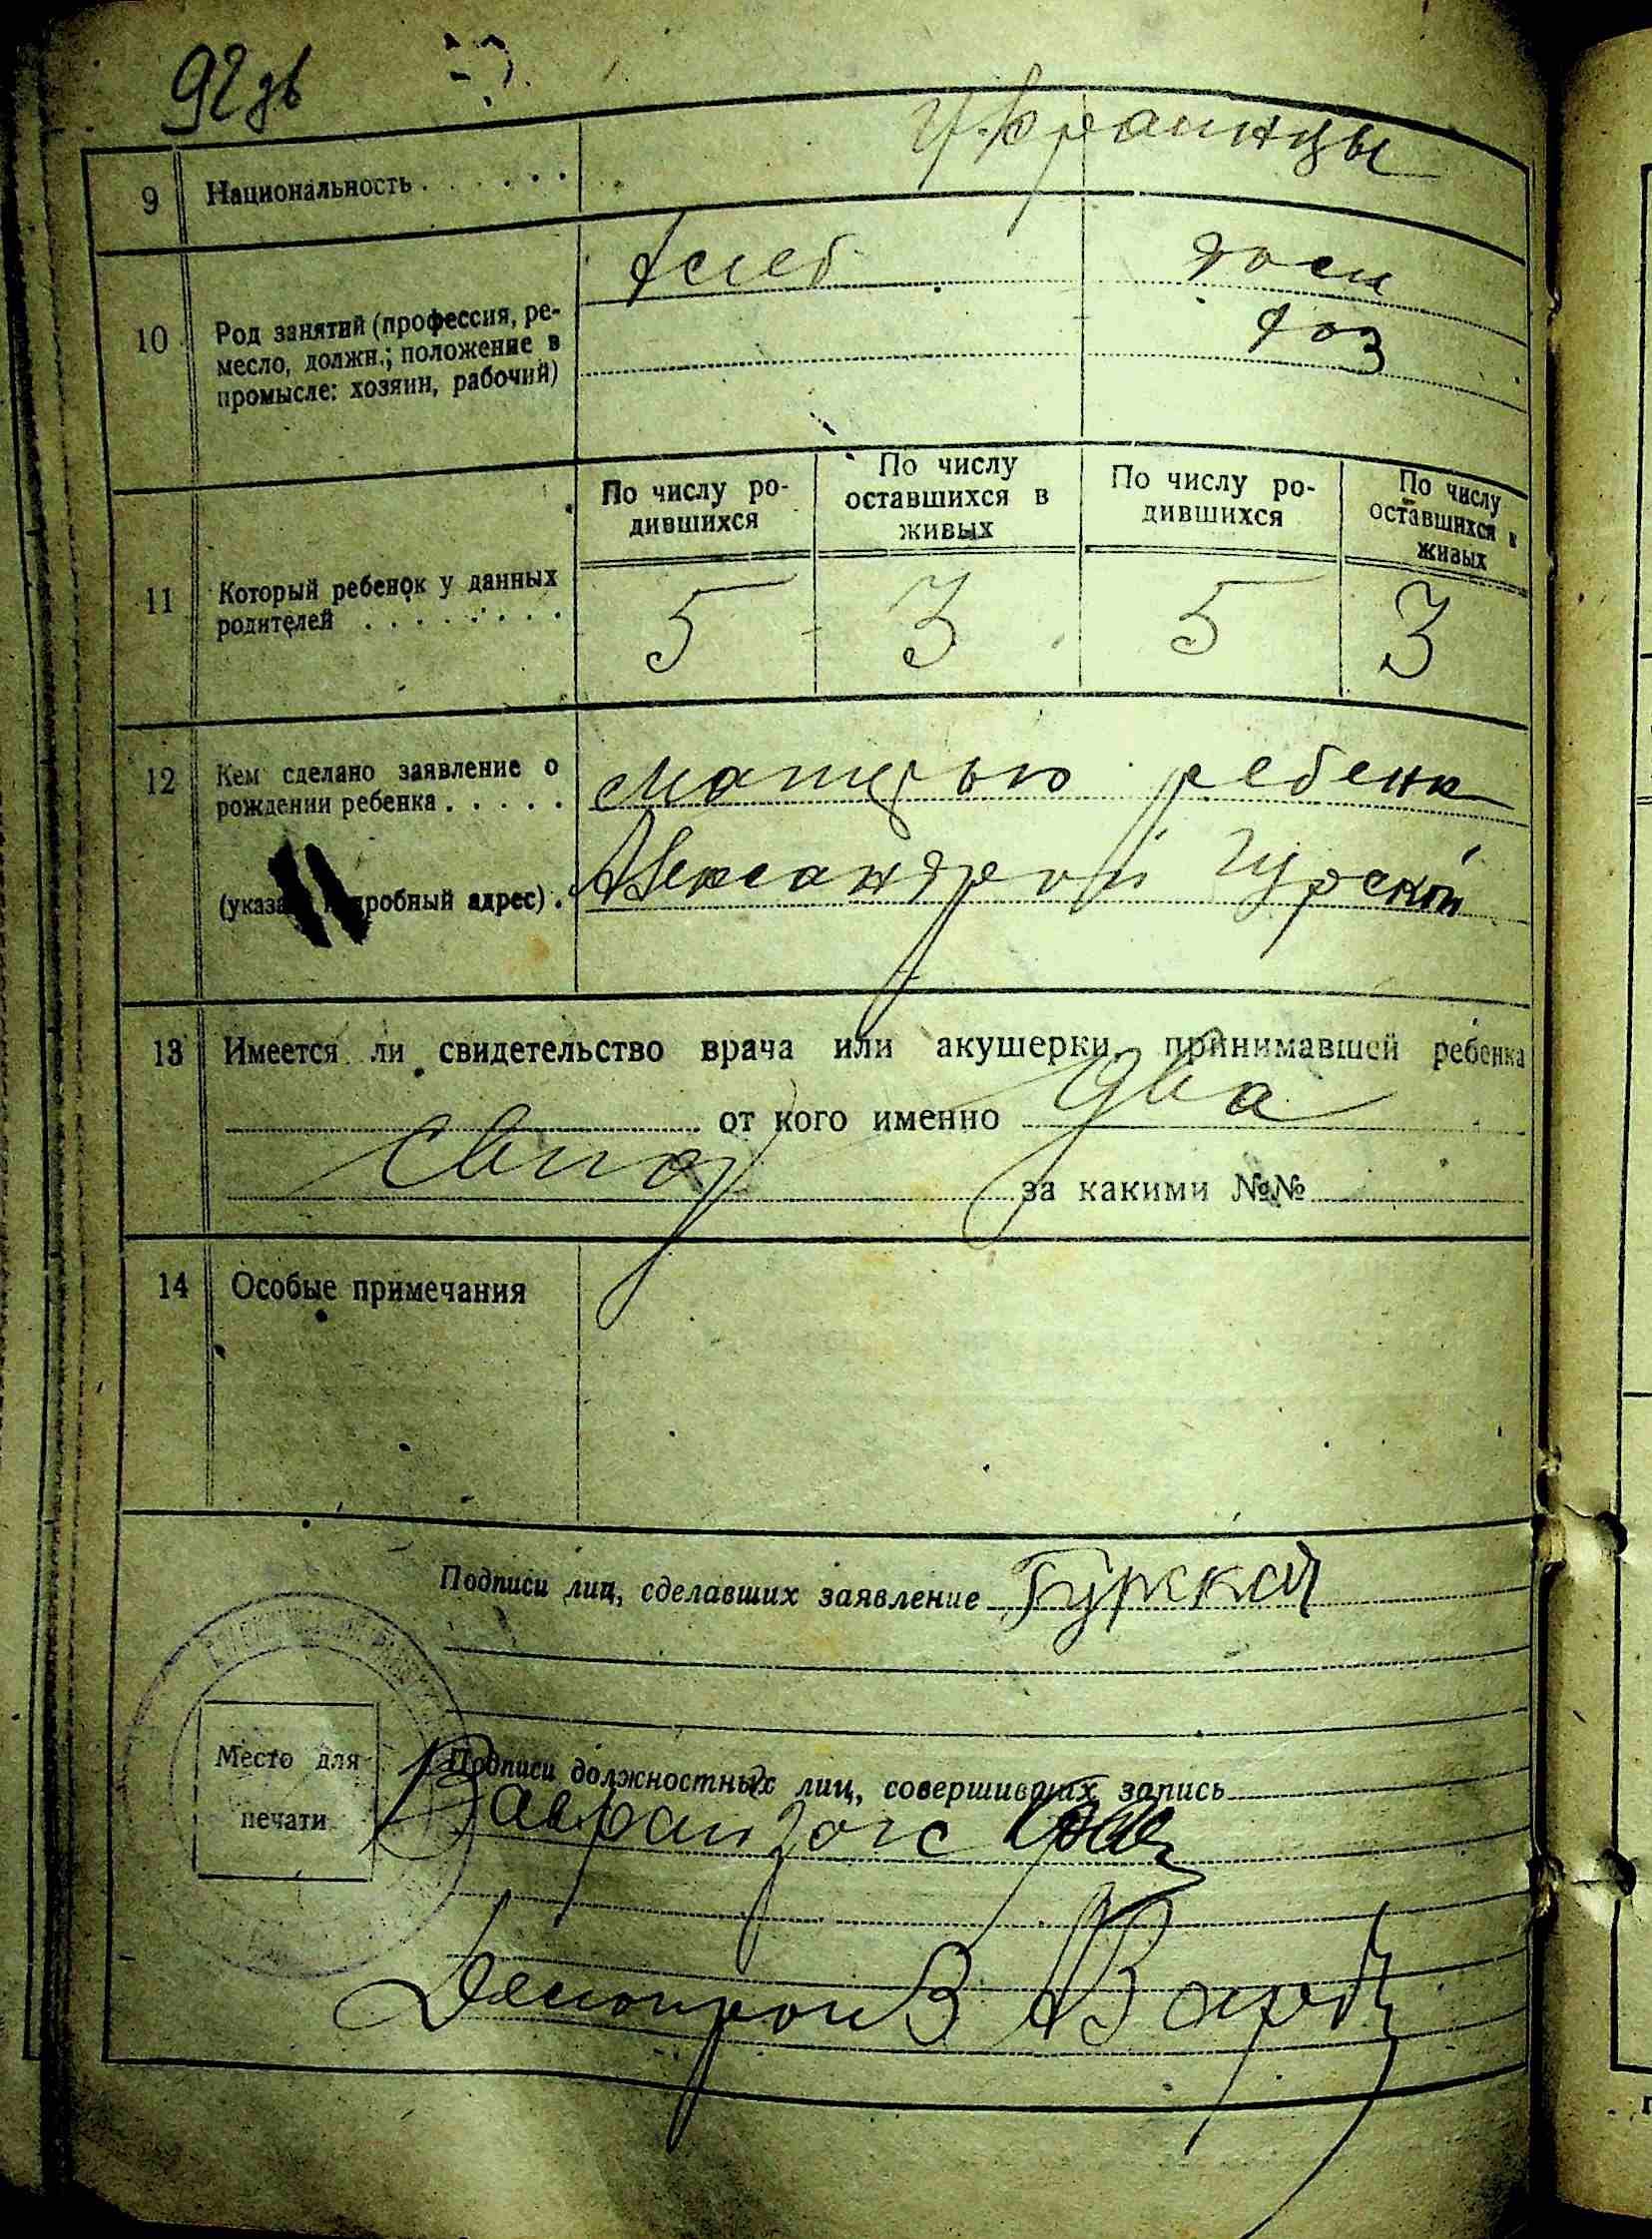 9 Национальность . . . . . . Украинцы
10 Род занятий (профессия, ре-
месло, должн.; положение в
промысле: хозяин, рабочий)
хлеб дом
хоз
По числу ро-
дившихся
По числу
оставшихся в
живых
По числу ро-
дившихся
По числу
оставшихся в
живых
11 Который ребенок у данных
родителей . . . . . . . .
5 3 5 3
12 Кем сделано заявление о
рождении ребенка . . . . .
матерью ребенка
(указать подробный адрес) .
Александрой Гурской
13 Имеется ли свидетельство врача или акушерки, принимавшей ребенка
от кого именно два
свид за какими №№
14 Особые примечания
Подписи лиц, сделавших заявление Гурской
Место для
печати
Подписи должностных лиц, совершивших запись